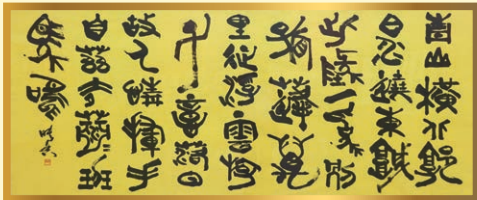 青山橫北郭
白水遶東城
此地一為別
孤蓬萬
里征浮雲遊
子意落日
故人情揮手
自茲去蕭々班
馬鳴